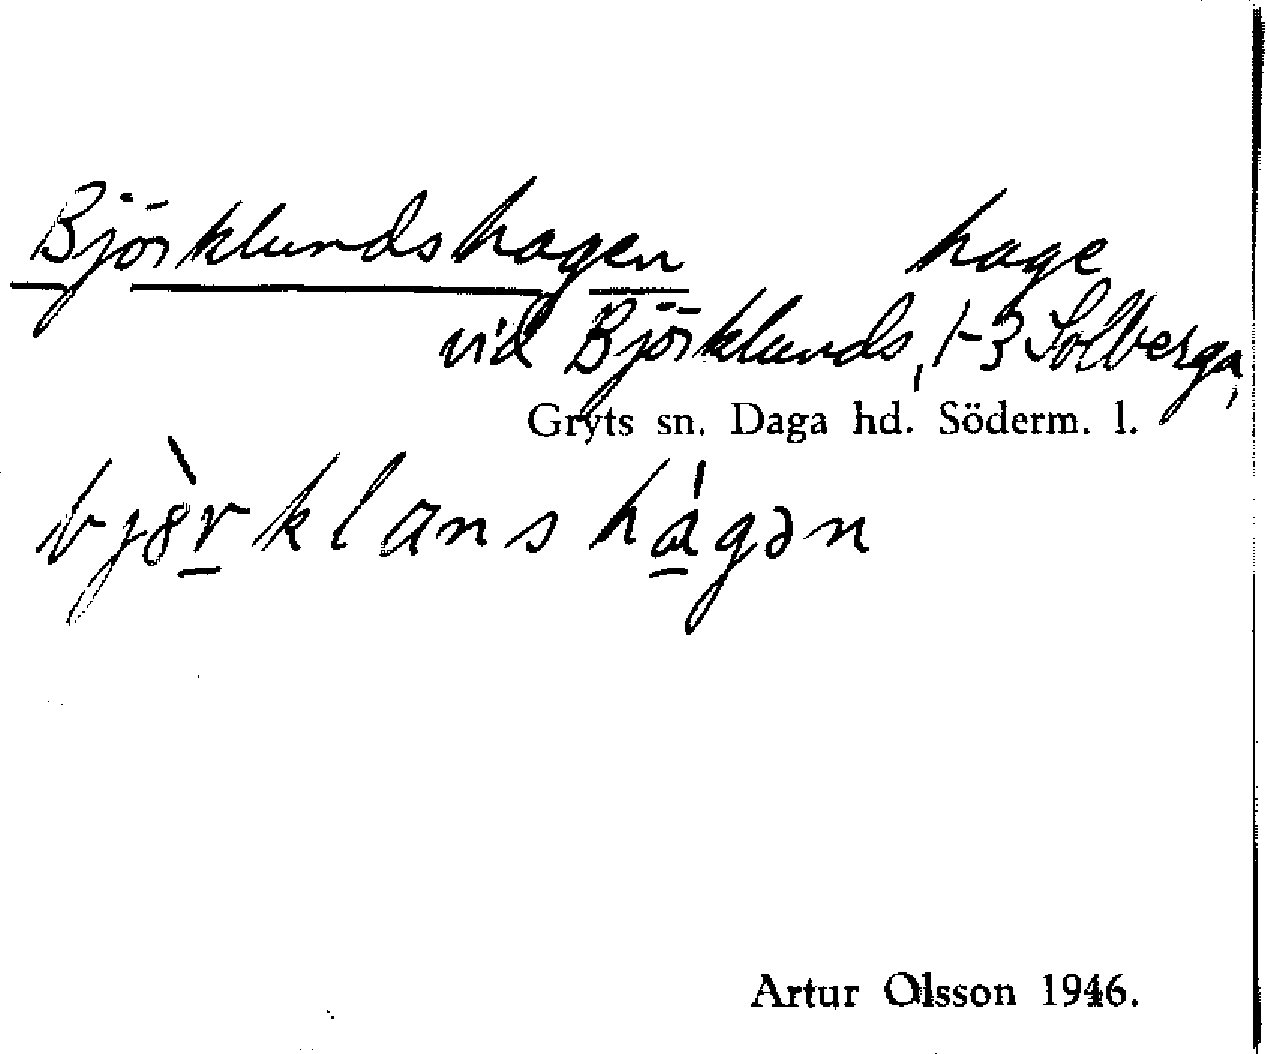 Björklundshagen hage
vid Björklunds, 1-3 Solberga,
Gryts sn. Daga hd. Söderm. l.
bjȣ̀r̲klans há̲gən
Artur Olsson 1946.